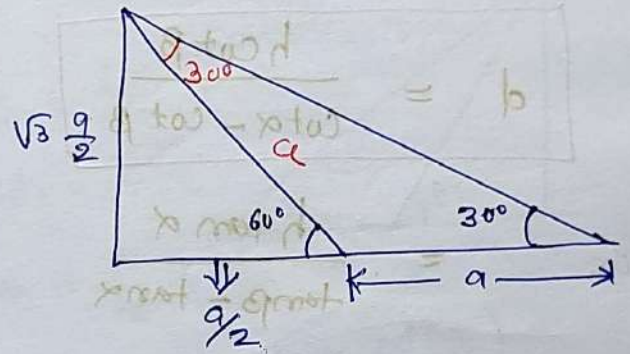 30°
√3 a/2
a
60°
30°
a
a/2